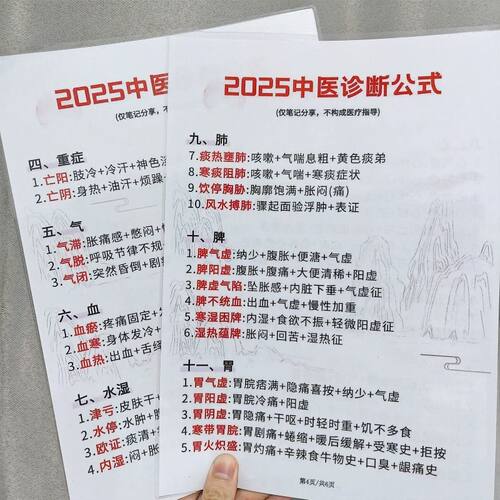 2025中医
(仅笔记分享，不
四、重症
1.亡阳:肢冷+冷汗+神色
2.亡阴:身热+油汗+烦躁
五、气
1.气滞:胀痛感+憋闷+
2.气脱:呼吸节律不规
3.气闭:突然昏倒+剧
六、血
1.血瘀:疼痛固定+
2.血寒:身体发冷+
3.血热:出血+舌绛
七、水湿
1.津亏:皮肤干+
2.水停:水肿+腹
3.欧证:痰清+
4.内湿:闷+胀
2025中医诊断公式
(仅笔记分享，不构成医疗指导)
九、肺
7.痰热壅肺:咳嗽+气喘息粗+黄色痰弟
8.寒痰阻肺:咳嗽+气喘+寒痰症状
9.饮停胸胁:胸廓饱满+胀闷(痛)
10.风水搏肺:骤起面验浮肿+表证
十、脾
1.脾气虚:纳少+腹胀+便溏+气虚
2.脾阳虚:腹胀+腹痛+大便清稀+阳虚
3.脾虚气陷:坠胀感+内脏下垂+气虚征
4.脾不统血:出血+气虚+慢性加重
5.寒湿困脾:内湿+食欲不振+轻微阳虚征
6.湿热蕴脾:胀闷+回苦+湿热征
十一、胃
1.胃气虚:胃脘痞满+隐痛喜按+纳少+气虚
2.胃阳虚:胃脘冷痛+阳虚
3.胃阴虚:胃隐痛+干呕+时轻时重+饥不多食
4.寒带胃脘:胃剧痛+蜷缩+暖后缓解+受寒史+拒按
5.胃火炽盛:胃灼痛+辛辣食牛物史+口臭+龈痛史
第4页/共6页